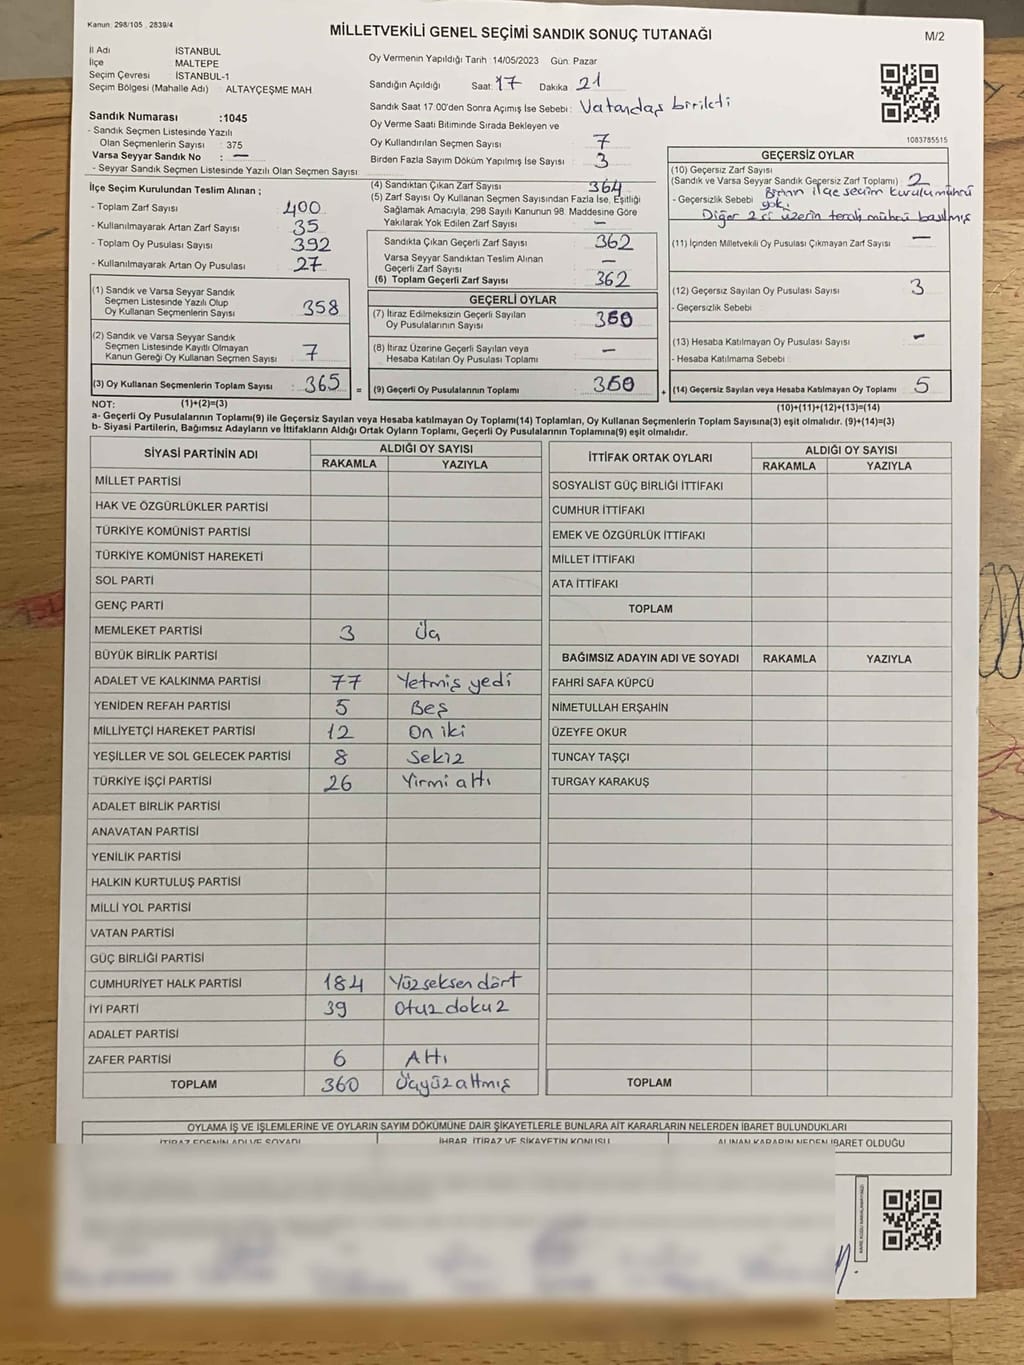 Kanun: 298/105 , 2839/4
MİLLETVEKİLİ GENEL SEÇİMİ SANDIK SONUÇ TUTANAĞI
M/2
İl Adı İSTANBUL
İlçe MALTEPE
Seçim Çevresi İSTANBUL-1
Seçim Bölgesi (Mahalle Adı) ALTAYÇEŞME MAH
Sandık Numarası :1045
- Sandık Seçmen Listesinde Yazılı
Olan Seçmenlerin Sayısı : 375
Varsa Seyyar Sandık No : —
- Seyyar Sandık Seçmen Listesinde Yazılı Olan Seçmen Sayısı:
İlçe Seçim Kurulundan Teslim Alınan ;
- Toplam Zarf Sayısı 400
- Kullanılmayarak Artan Zarf Sayısı 35
- Toplam Oy Pusulası Sayısı 392
- Kullanılmayarak Artan Oy Pusulası 27
(1) Sandık ve Varsa Seyyar Sandık
Seçmen Listesinde Yazılı Olup
Oy Kullanan Seçmenlerin Sayısı 358
(2) Sandık ve Varsa Seyyar Sandık
Seçmen Listesinde Kayıtlı Olmayan
Kanun Gereği Oy Kullanan Seçmen Sayısı 7
(3) Oy Kullanan Seçmenlerin Toplam Sayısı : 365
Oy Vermenin Yapıldığı Tarih :14/05/2023 Gün: Pazar
Sandığın Açıldığı Saat: 17 Dakika 21
Sandık Saat 17.00'den Sonra Açımış İse Sebebi : Vatandaş birikti
Oy Verme Saati Bitiminde Sırada Bekleyen ve
Oy Kullandırılan Seçmen Sayısı 7
Birden Fazla Sayım Döküm Yapılmış İse Sayısı : 3
(4) Sandıktan Çıkan Zarf Sayısı 364
(5) Zarf Sayısı Oy Kullanan Seçmen Sayısından Fazla İse, Eşitliği
Sağlamak Amacıyla, 298 Sayılı Kanunun 98. Maddesine Göre
Yakılarak Yok Edilen Zarf Sayısı —
Sandıkta Çıkan Geçerli Zarf Sayısı 362
Varsa Seyyar Sandıktan Teslim Alınan
Geçerli Zarf Sayısı —
(6) Toplam Geçerli Zarf Sayısı 362
GEÇERLİ OYLAR
(7) İtiraz Edilmeksizin Geçerli Sayılan
Oy Pusulalarının Sayısı : 360
(8) İtiraz Üzerine Geçerli Sayılan veya
Hesaba Katılan Oy Pusulası Toplamı —
= (9) Geçerli Oy Pusulalarının Toplamı : 360
1083785515
GEÇERSİZ OYLAR
(10) Geçersiz Zarf Sayısı
(Sandık ve Varsa Seyyar Sandık Geçersiz Zarf Toplamı) 2
- Geçersizlik Sebebi Birinin ilçe seçim kurulu mührü
yok.
Diğer 2.ci üzerin tercih mührü basılmış
(11) İçinden Milletvekili Oy Pusulası Çıkmayan Zarf Sayısı —
(12) Geçersiz Sayılan Oy Pusulası Sayısı 3
- Geçersizlik Sebebi
(13) Hesaba Katılmayan Oy Pusulası Sayısı -
- Hesaba Katılmama Sebebi
+ (14) Geçersiz Sayılan veya Hesaba Katılmayan Oy Toplamı 5
NOT: (1)+(2)=(3)
(10)+(11)+(12)+(13)=(14)
a- Geçerli Oy Pusulalarının Toplamı(9) ile Geçersiz Sayılan veya Hesaba katılmayan Oy Toplamı(14) Toplamları, Oy Kullanan Seçmenlerin Toplam Sayısına(3) eşit olmalıdır. (9)+(14)=(3)
b- Siyasi Partilerin, Bağımsız Adayların ve İttifakların Aldığı Ortak Oyların Toplamı, Geçerli Oy Pusulalarının Toplamına(9) eşit olmalıdır.
SİYASİ PARTİNİN ADI ALDIĞI OY SAYISI
RAKAMLA YAZIYLA
MİLLET PARTİSİ
HAK VE ÖZGÜRLÜKLER PARTİSİ
TÜRKİYE KOMÜNİST PARTİSİ
TÜRKİYE KOMÜNİST HAREKETİ
SOL PARTİ
GENÇ PARTİ
MEMLEKET PARTİSİ 3 Üç
BÜYÜK BİRLİK PARTİSİ
ADALET VE KALKINMA PARTİSİ 77 Yetmiş yedi
YENİDEN REFAH PARTİSİ 5 Beş
MİLLİYETÇİ HAREKET PARTİSİ 12 On iki
YEŞİLLER VE SOL GELECEK PARTİSİ 8 Sekiz
TÜRKİYE İŞÇİ PARTİSİ 26 Yirmi altı
ADALET BİRLİK PARTİSİ
ANAVATAN PARTİSİ
YENİLİK PARTİSİ
HALKIN KURTULUŞ PARTİSİ
MİLLİ YOL PARTİSİ
VATAN PARTİSİ
GÜÇ BİRLİĞİ PARTİSİ
CUMHURİYET HALK PARTİSİ 184 Yüzseksen dört
İYİ PARTİ 39 Otuz dokuz
ADALET PARTİSİ
ZAFER PARTİSİ 6 Altı
TOPLAM 360 Üçyüzaltmış
İTTİFAK ORTAK OYLARI ALDIĞI OY SAYISI
RAKAMLA YAZIYLA
SOSYALİST GÜÇ BİRLİĞİ İTTİFAKI
CUMHUR İTTİFAKI
EMEK VE ÖZGÜRLÜK İTTİFAKI
MİLLET İTTİFAKI
ATA İTTİFAKI
TOPLAM
BAĞIMSIZ ADAYIN ADI VE SOYADI RAKAMLA YAZIYLA
FAHRİ SAFA KÜPCÜ
NİMETULLAH ERŞAHİN
ÜZEYFE OKUR
TUNCAY TAŞÇI
TURGAY KARAKUŞ
TOPLAM
OYLAMA İŞ VE İŞLEMLERİNE VE OYLARIN SAYIM DÖKÜMÜNE DAİR ŞİKAYETLERLE BUNLARA AİT KARARLARIN NELERDEN İBARET BULUNDUKLARI
İTİRAZ EDENİN ADI VE SOYADI İHBAR, İTİRAZ VE ŞİKAYETİN KONUSU ALINAN KARARIN NEDEN İBARET OLDUĞU